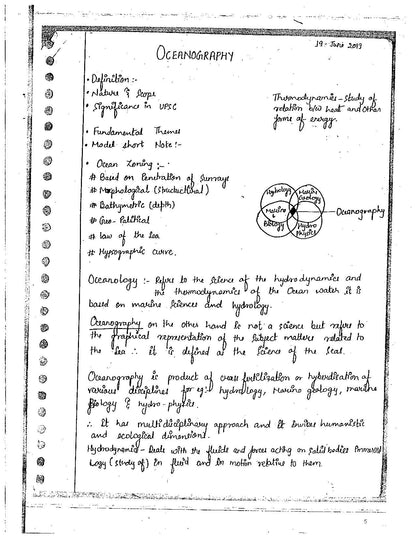 19 - June 2019
OCEANOGRAPHY
• Definition :-
• Nature & Scope
• Significance in UPSC
Thermodynamics - study of
relation b/w heat and other
forms of energy.
• Fundamental Themes
• Model short Note :-
• Ocean Zoning :-
# Based on Penetration of Sunrays
# Morphological (Structural)
# Bathymetric (depth)
# Geo-Political
# Law of the Sea
# Hypsographic curve.
Hydrology
Marine Geology
Marine Biology
Hydro Physics
Oceanography
Oceanology :- Refers to the science of the hydrodynamics and
the thermodynamics of the Ocean water it is
based on marine sciences and hydrology.
Oceanography on the other hand is not a science but refers to
the graphical representation of the subject matters related to
the sea ∴ it is defined as the science of the sea.
Oceanography is product of cross fertilization or hybridization of
various disciplines for eg:- hydrology, Marine geology, marine
biology & hydro-physics.
∴ It has multidisciplinary approach and it invites humanistic
and ecological dimensions.
Hydrodynamic - Deals with the fluids and forces acting on solid bodies immersed
Logy (study of) in fluid and in motion relative to them.
5